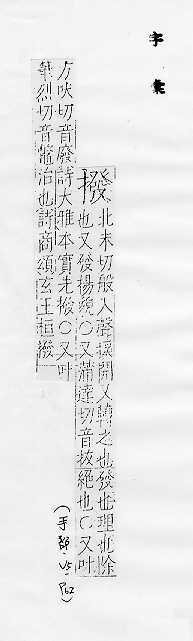 字彙
撥
北末切般入聲採開又轉之也發也理也除
也又發揚貌〇又蒲達切音拔絕也〇又叶
方吠切音廢詩大雅本實先撥〇又叶
筆烈切音鷩治也詩商頌玄王桓撥
(手部·V5·P62)